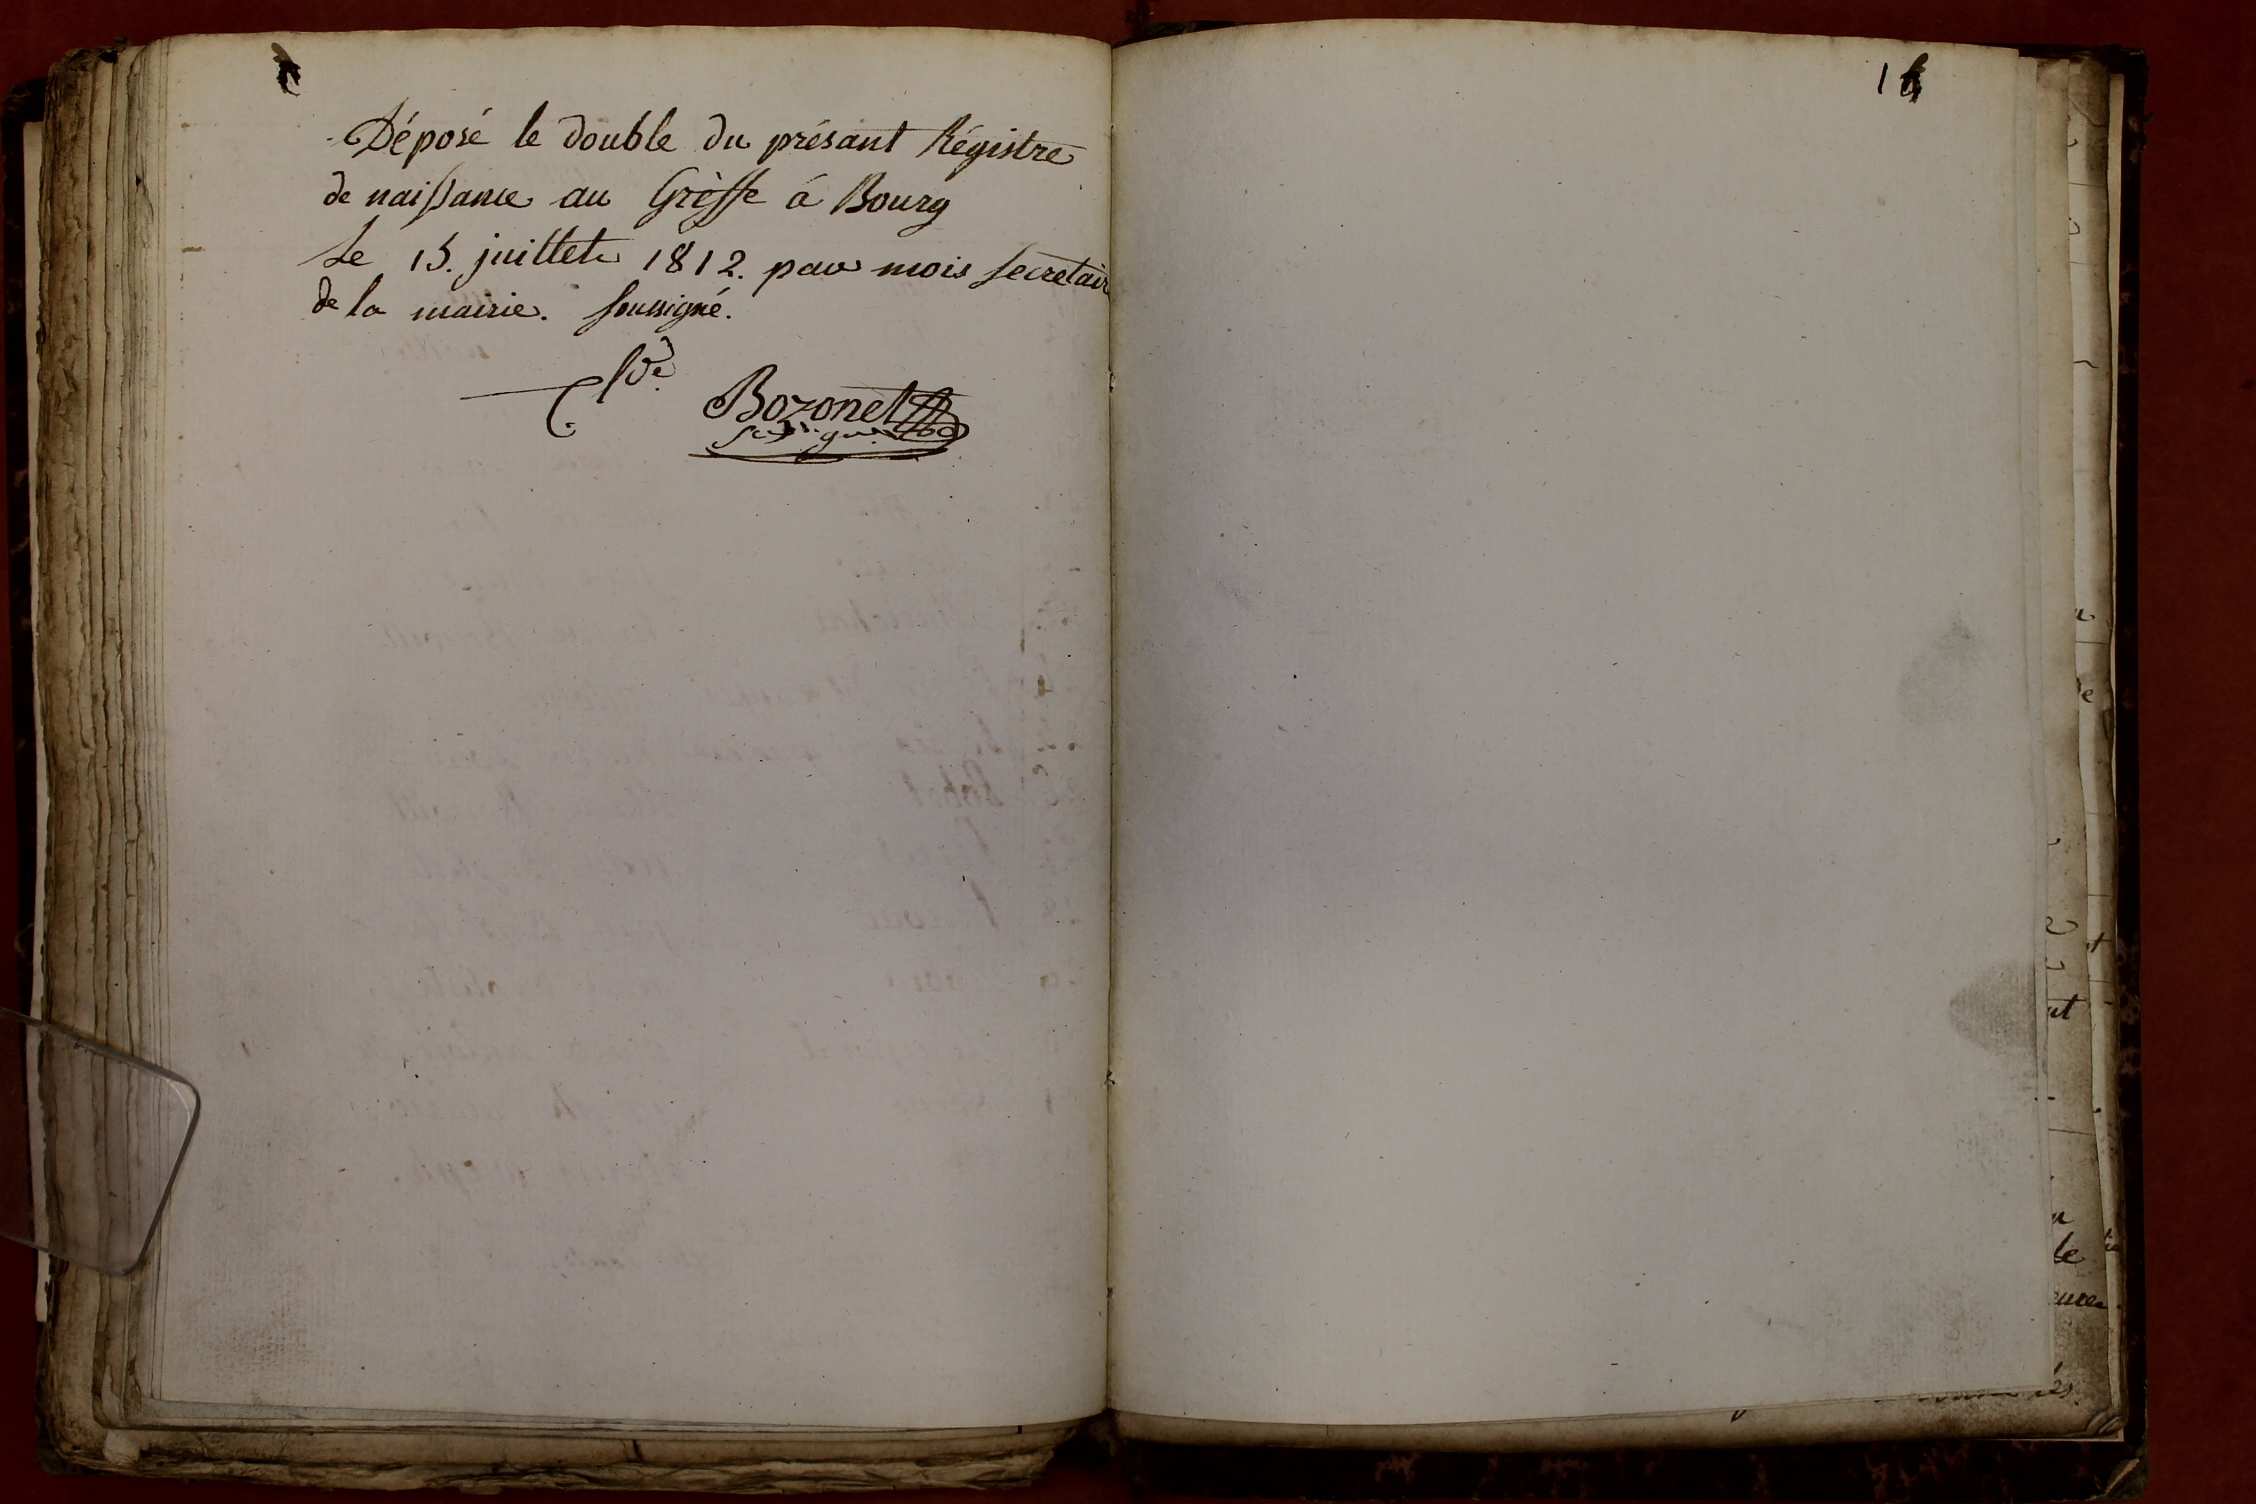 Déposé le double du présant Régistre
de naissance au Grèffe á Bourg
Le 15. juillet 1812. par mois Secretair
de la mairie. Soussigné.
Bozonet